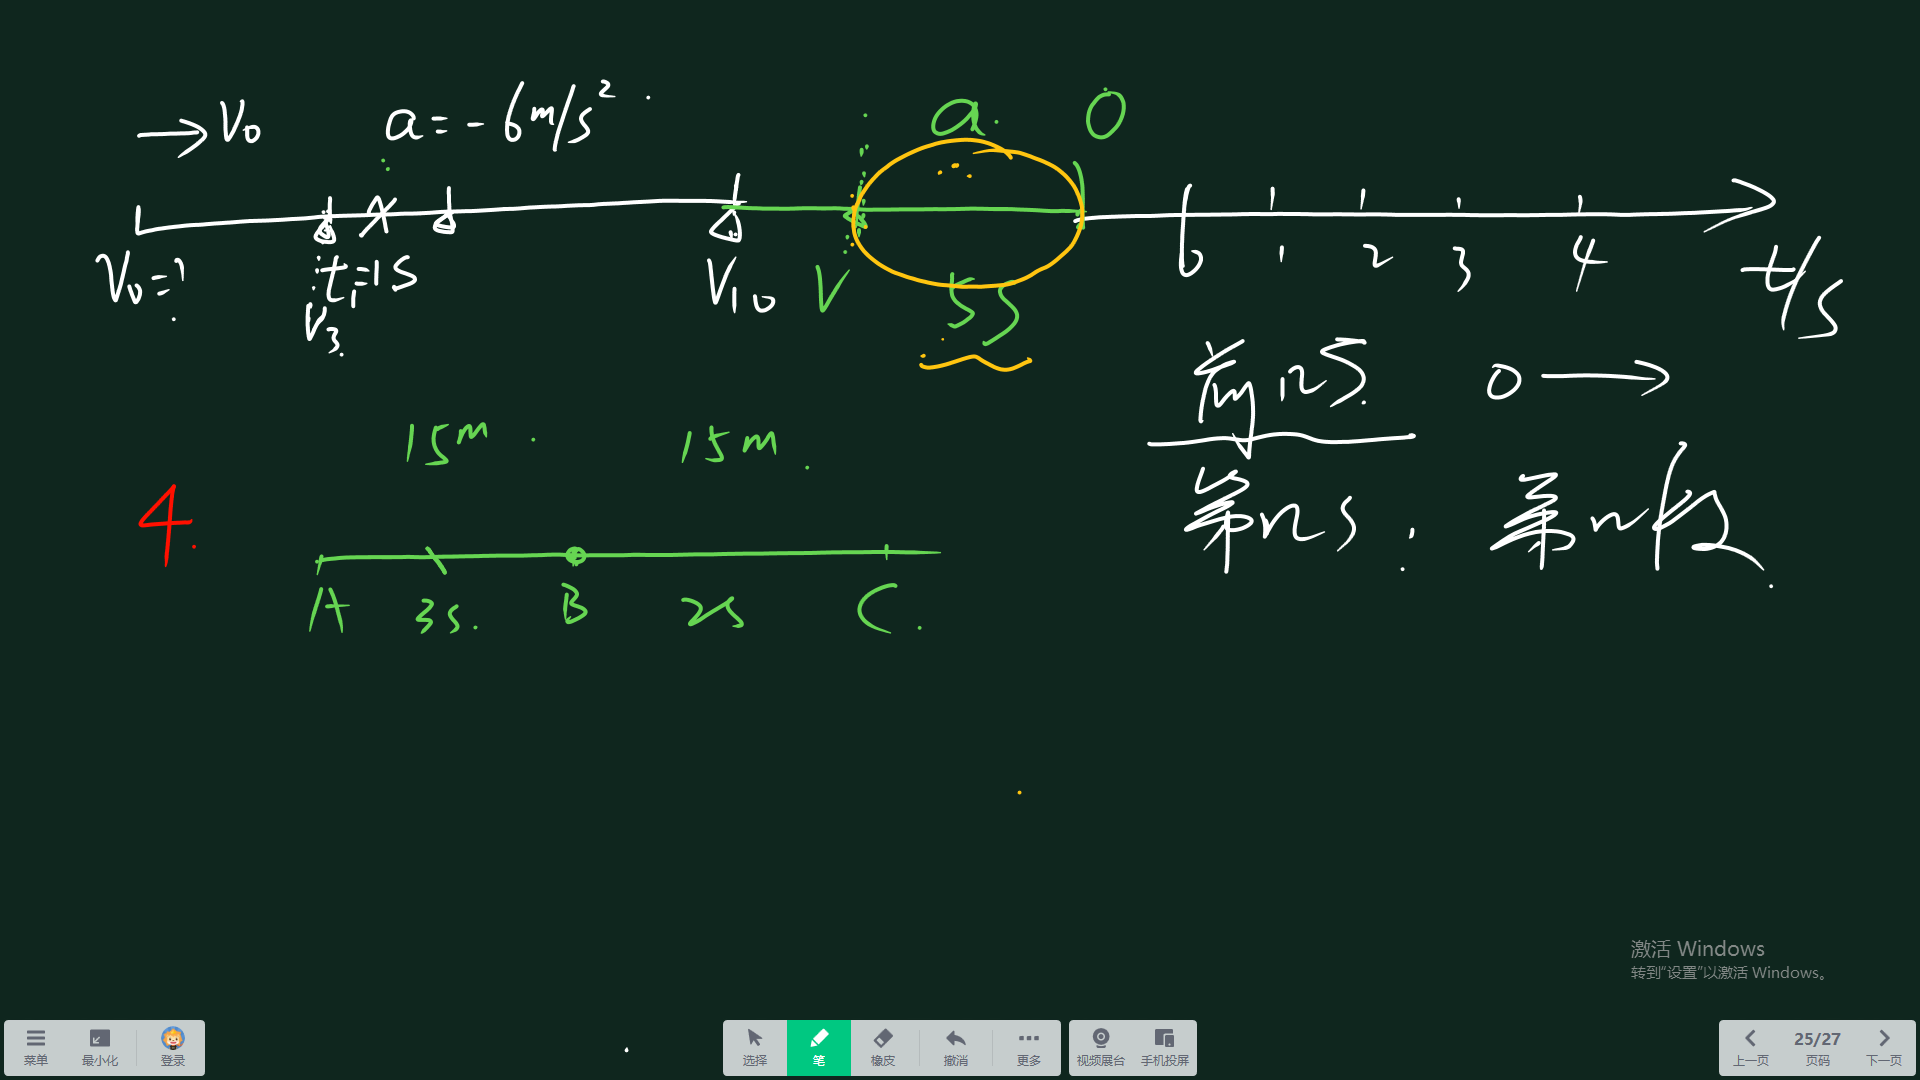 →V₀ a=-6m/s² a 0
V₀=? t₁=1s V₁₀ V 5s 0 1 2 3 4 t/s
V₃
前ns 0→
15m 15m
4. 第ns 第n段
A 3s B 2s C
激活 Windows
转到“设置”以激活 Windows。
菜单 最小化 登录 选择 笔 橡皮 撤消 更多 视频展台 手机投屏 上一页 25/27 页码 下一页